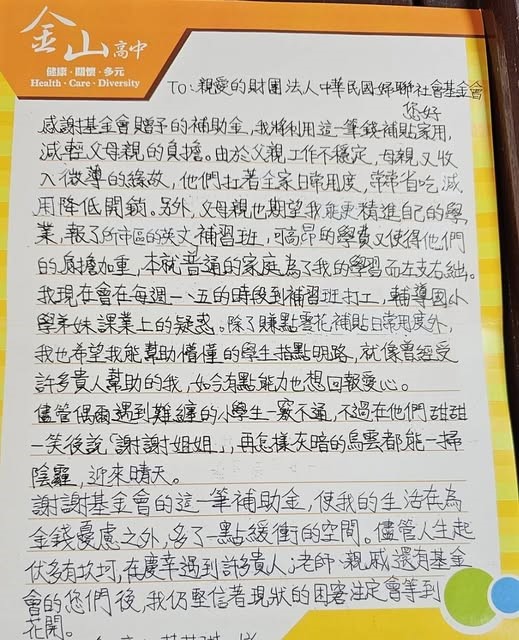 金山高中
健康·關懷·多元
Health·Care·Diversity
TO:親愛的財團法人中華民國婦聯社會基金會
您好
感謝基金會贈予的補助金,我將利用這一筆錢補貼家用,
減輕父母親的負擔。由於父親工作不穩定,母親又收
入微薄的緣故,他們扛著全家日常用度,常常省吃減
用降低開銷。另外,父母親也期望我能更精進自己的學
業,報了所市區的英文補習班,可高昂的學費又使得他們
的負擔加重,本就普通的家庭為了我的學習而左支右絀。
我現在會在每週一、五的時段到補習班打工,輔導國小
學弟妹課業上的疑惑。除了賺點零花補貼日常用度外,
我也希望我能幫助懵懂的學生指點明路,就像曾經受
許多貴人幫助的我,如今有點能力也想回報愛心。
儘管偶爾遇到難纏的小學生一竅不通,不過在他們甜甜
一笑後說「謝謝姐姐」,再怎樣灰暗的烏雲都能一掃
陰霾,迎來晴天。
謝謝基金會的這一筆補助金,使我的生活在為
金錢憂慮之外,多了一點緩衝的空間。儘管人生起
伏多有坎坷,在慶幸遇到許多貴人;老師、親戚還有基金
會的您們後,我仍堅信著現狀的困窘注定會等到
花開。